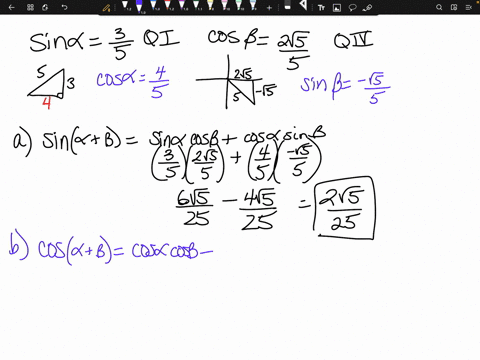 sinα = 3/5 QI cosβ = 2√5/5 QIV
5 3 4 cosα = 4/5 2√5 -√5 5 sinβ = -√5/5
a) sin(α+B) = sinα cosβ + cosα sinβ
(3/5)(2√5/5) + (4/5)(-√5/5)
6√5/25 - 4√5/25 = 2√5/25
b) cos(α+B) = cosα cosB -